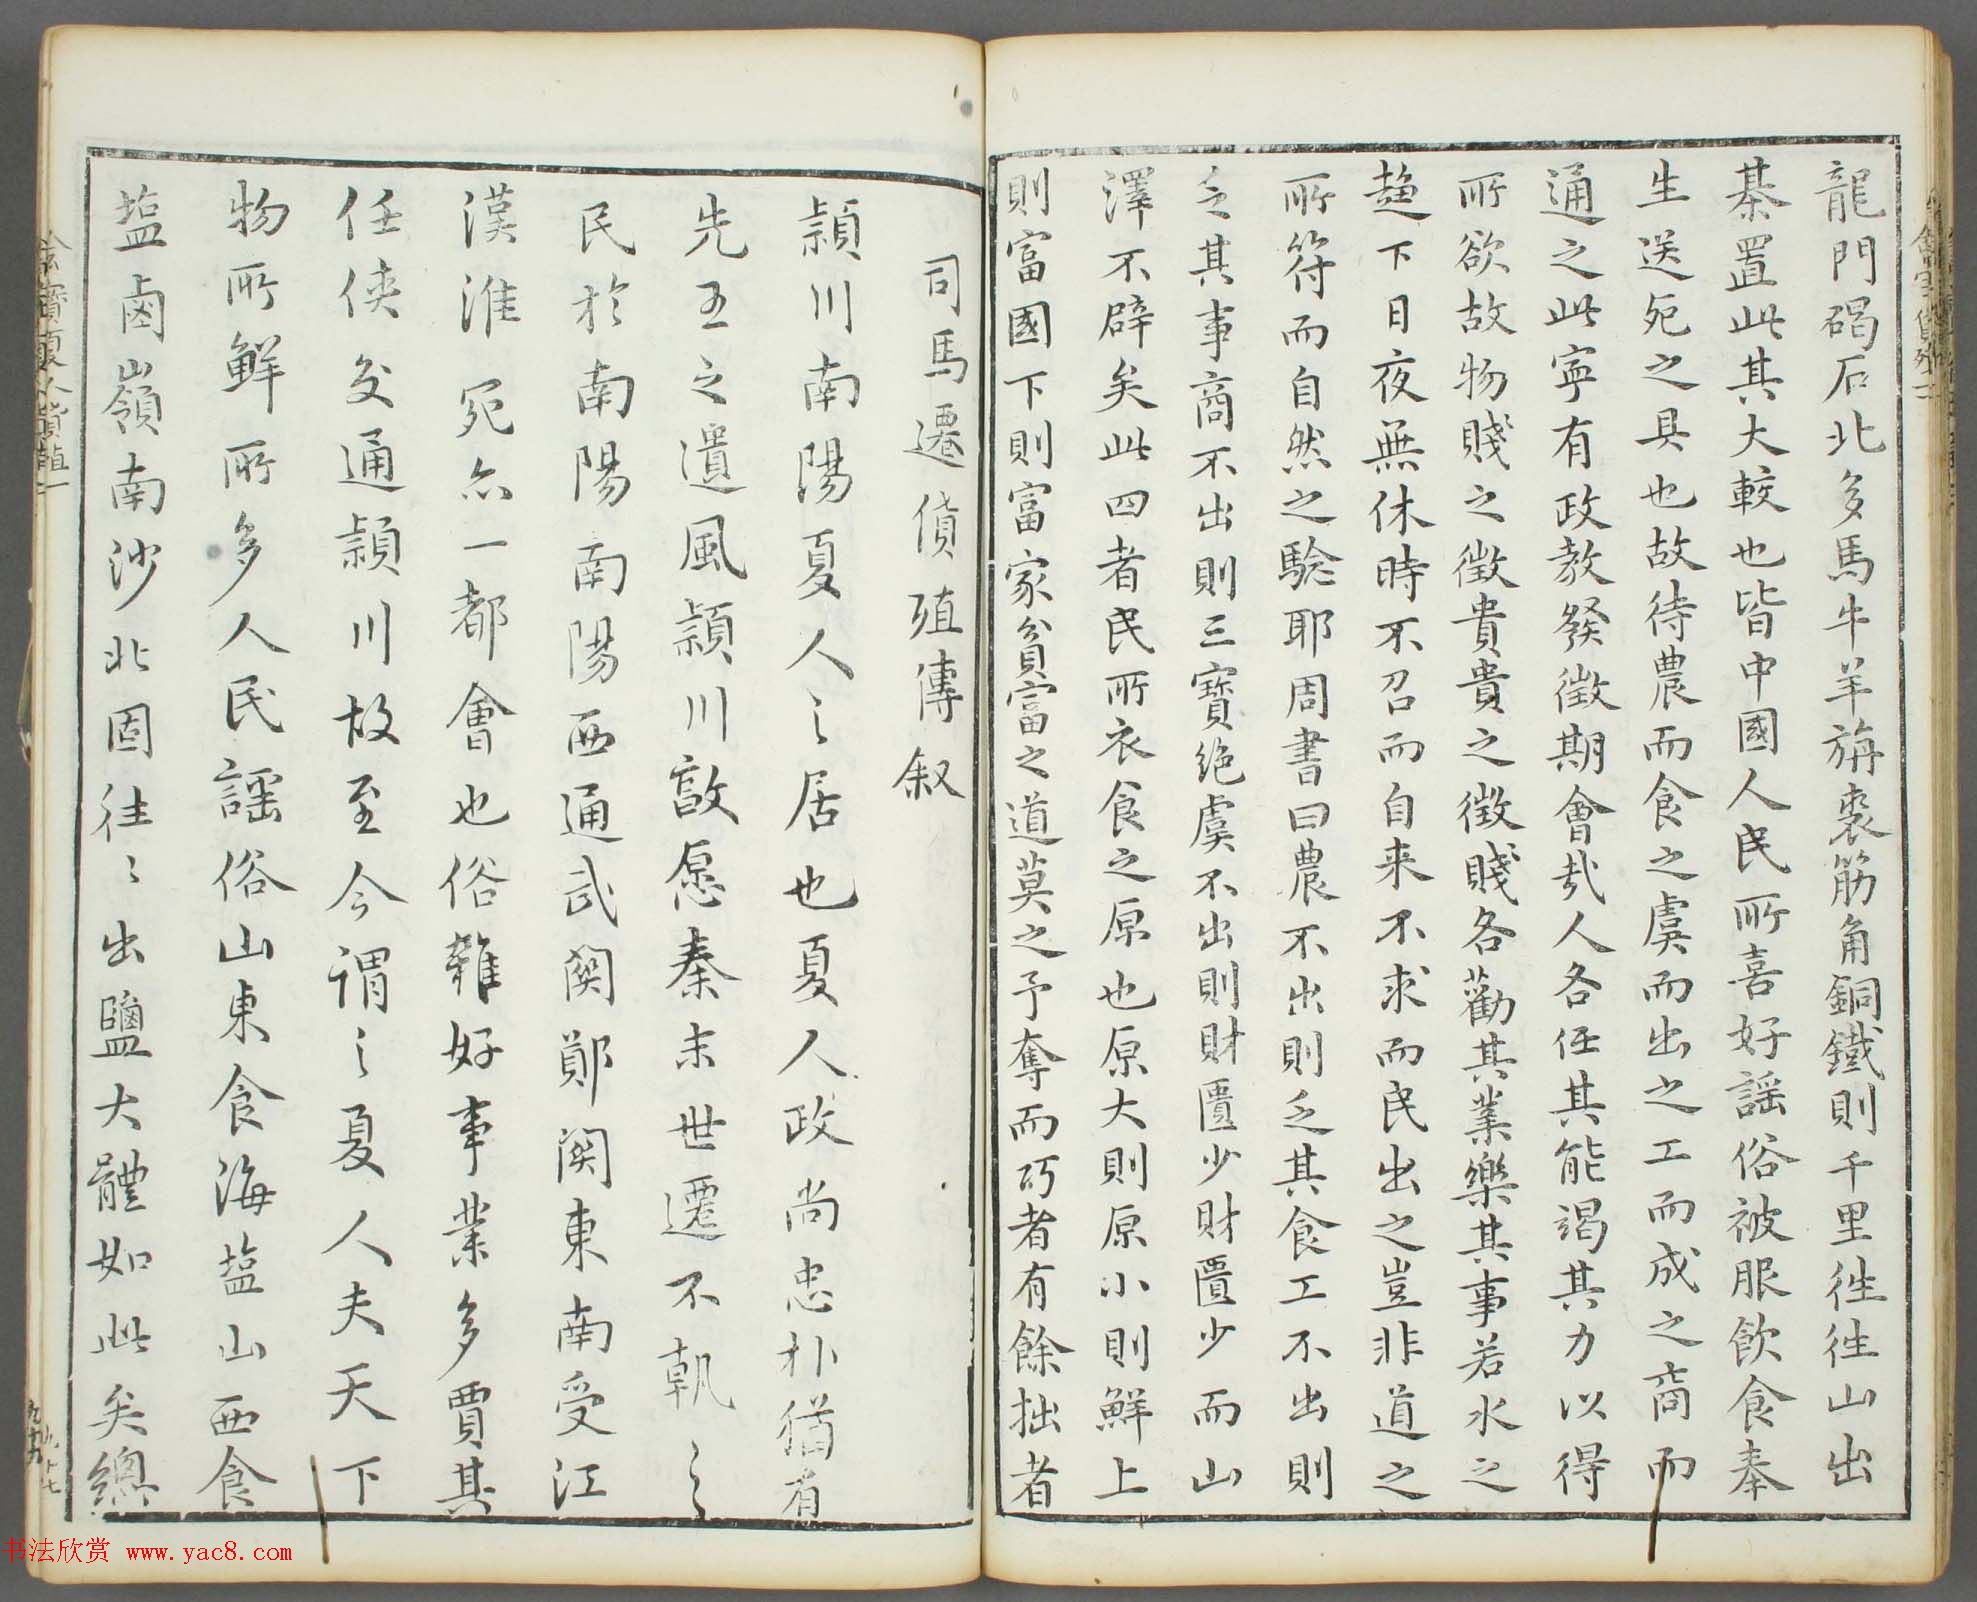 龍門碣石北多馬牛羊旃裘筋角銅鐵則千里徃徃山出
棊置此其大較也皆中國人民所喜好謡俗被服飲食奉
生送死之具也故待農而食之虞而出之工而成之商而
通之此寕有政教發徵期會㢤人各任其能竭其力以得
所欲故物賤之徵貴貴之徵賤各勸其業樂其事若水之
趨下日夜無休時不召而自来不求而民出之豈非道之
所符而自然之騐耶周書曰農不出則乏其食工不出則
乏其事商不出則三寳绝虞不出則財匱少財匱少而山
澤不辟矣此四者民所衣食之原也原大則原小則鮮上
則富國下則富家貧富之道莫之予奪而巧者有餘拙者
司馬遷貨殖傳叙
潁川南陽夏人之居也夏人政尚忠朴猶有
先王之遺風潁川敦愿秦末世遷不軌之
民於南陽南陽西通武關鄖關東南受江
漢淮宛亦一都會也俗雜好事業多賈其
任俠交通潁川故至今謂之夏人夫天下
物所鮮所多人民謡俗山東食海塩山西食
塩鹵嶺南沙北固往〻出鹽大體如此矣總
书法欣赏 www.yac8.com